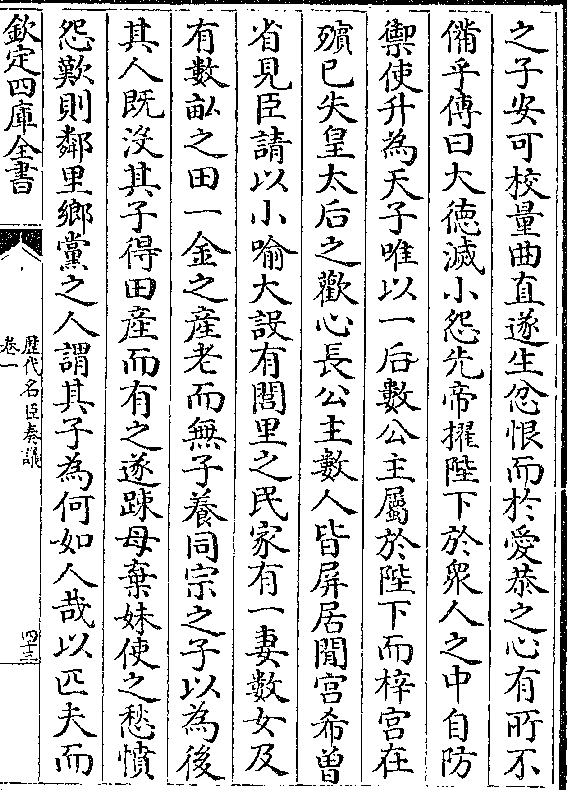 之子安可校量曲直遂生忿恨而於愛恭之心有所不
備乎傳曰大德滅小怨先帝擢陛下於衆人之中自防
禦使升為天子唯以一后數公主屬於陛下而梓宮在
殯已失皇太后之歡心長公主數人皆屏居閒宫希曽
省見臣請以小喻大設有閭里之民家有一妻數女及
有數畝之田一金之産老而無子養同宗之子以為後
其人既沒其子得田産而有之遂踈母棄妹使之愁憤
怨歎則鄰里鄉黨之人謂其子為何如人哉以匹夫而
欽定四庫全書
歷代名臣奏議
卷一
四十三